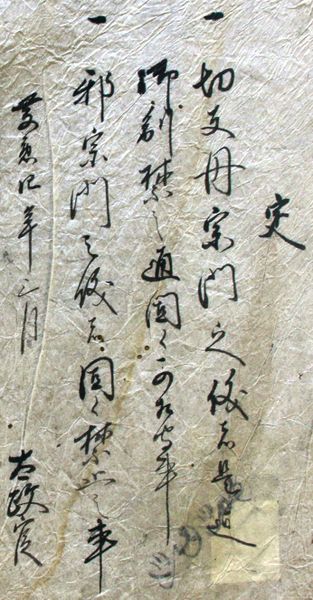 定
一 切支丹宗門之儀者是迄
御制禁之通固く可相守事
一 邪宗門之儀者固く禁止之事
慶應四年三月 太政官